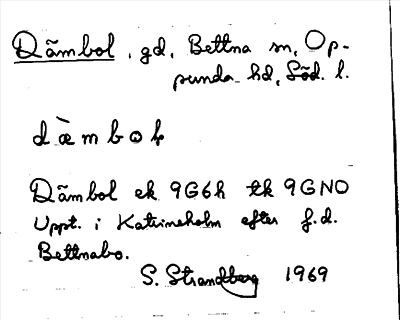 Dämbol, gd, Bettna sn, Op-
punda hd, Söd. l.
dæ̀mboɭ
Dämbol ek 9G6h tk 9GNO
Uppt. i Katrineholm efter f.d.
Bettnabo.
S. Strandberg 1969